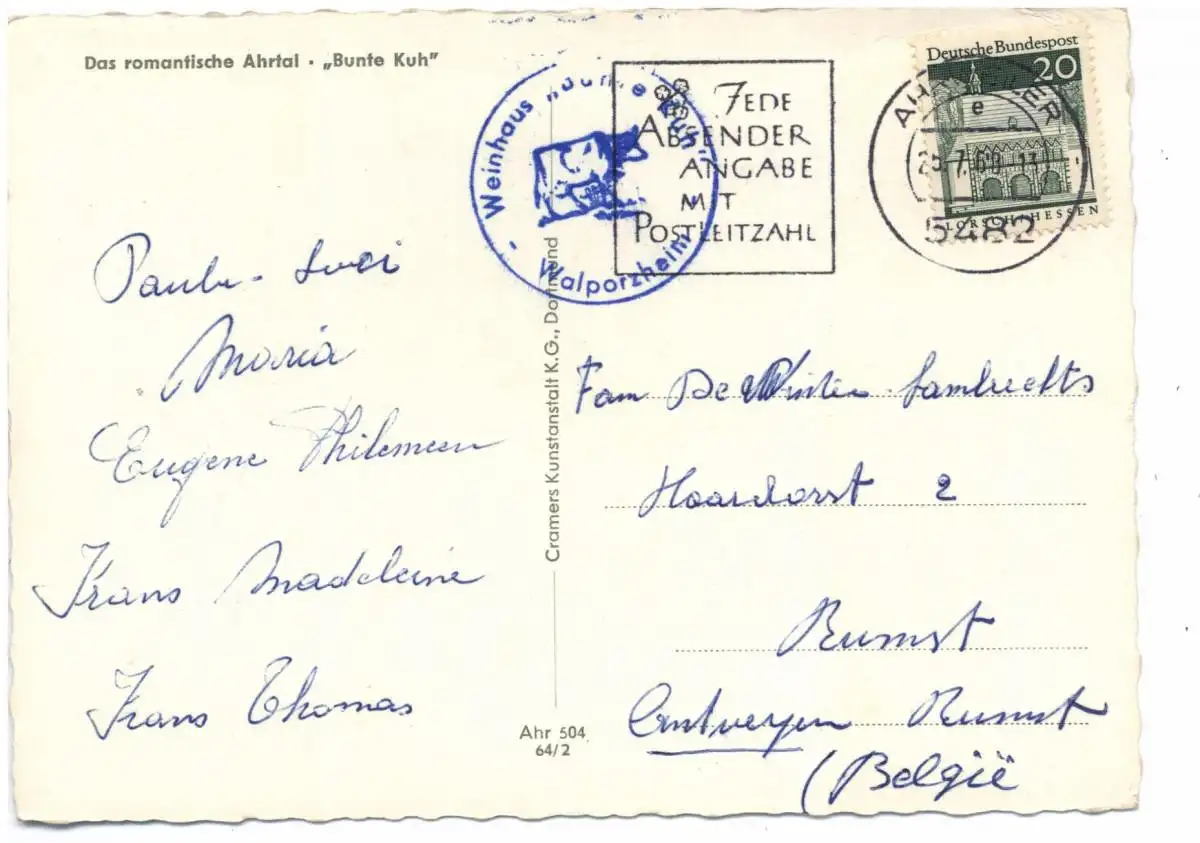 Das romantische Ahrtal · „Bunte Kuh"
Weinhaus „Bunte Kuh"
Walporzheim
JEDE
ABSENDER
ANGABE
MIT
POSTLEITZAHL
Deutsche Bundespost
20
LORSCH/HESSEN
AHRWEILER
e
5482
Maria
Eugene Philemeen
Frans Madeleine
Frans Thomas
Cramers Kunstanstalt K.G., Dortmund
Ahr 504
64/2
Fam De Winter Lambrechts
2
Rumst
Antwerpen Rumst
(België